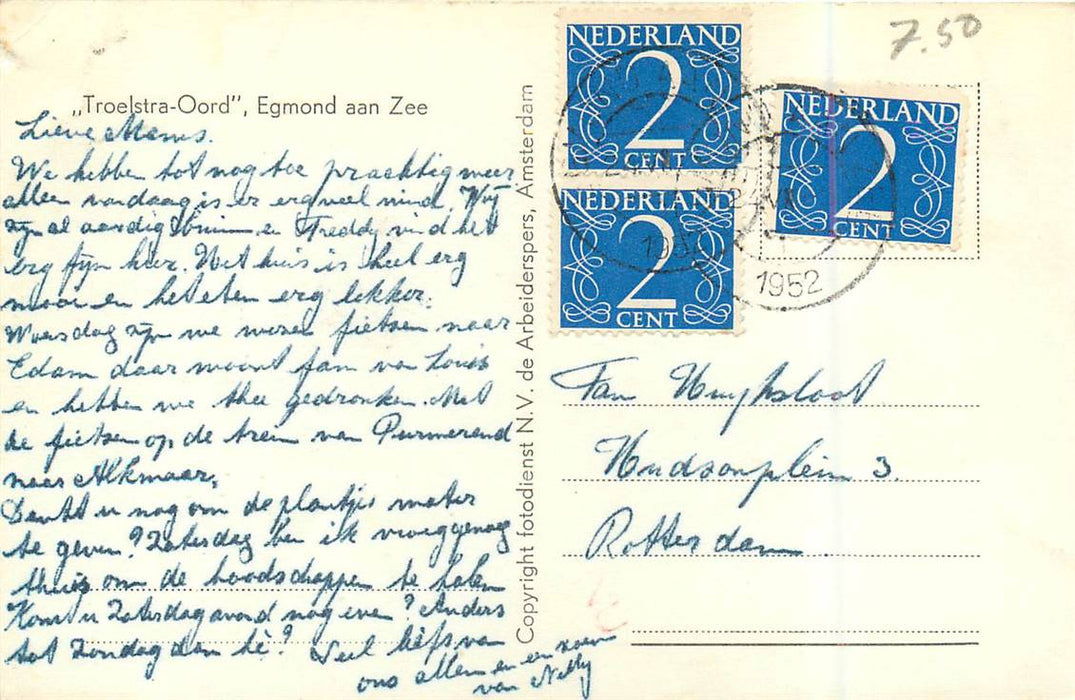 7.50
„Troelstra-Oord”, Egmond aan Zee
Lieve Mams.
We hebben tot nog toe prachtig weer
alleen vandaag is er erg veel wind. Wij
zijn al aardig bruin en Freddy vind het
erg fijn hier. Het huis is heel erg
mooi en het eten erg lekker.
Woensdag zijn we wezen fietsen naar
Edam daar woont fam van Louis
en hebben we thee gedronken. Met
de fietsen op de trein van Purmerend
naar Alkmaar.
Denkt u nog om de plantjes water
te geven? Zaterdag ben ik vroeg genoeg
thuis om de boodschappen te halen
Komt u Zaterdagavond nog even? Anders
tot Zondag dan hè? Veel liefs van
ons allen en een zoen
van Nelly
Copyright fotodienst N.V. de Arbeiderspers, Amsterdam
NEDERLAND
2
CENT
NEDERLAND
2
CENT
NEDERLAND
2
CENT
195
1952
Fam Huijksloot
Hudsonplein 3.
Rotterdam